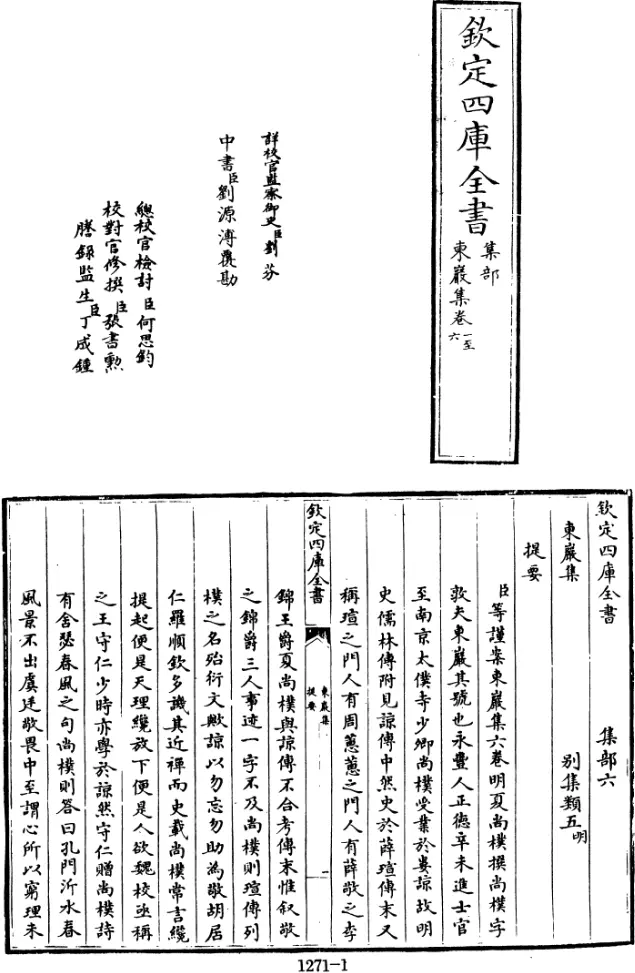 欽定四庫全書
集部
東巖集卷一至六
詳校官監察御史臣劉芬
中書臣劉源溥覆勘
總校官檢討臣何思鈞
校對官修撰臣張書勲
謄錄監生臣丁成鍾
欽定四庫全書
集部六
東巖集
別集類五明
提要
臣等謹案東巖集六卷明夏尚樸撰尚樸字
敦夫東巖其號也永豐人正德辛未進士官
至南京太僕寺少卿尚樸受業於婁諒故明
史儒林傳附見諒傳中然史於薛瑄傳末又
稱瑄之門人有周蕙蕙之門人有薛敬之李
欽定四庫全書
東巖集
提要
一
錦王爵夏尚樸與諒傳不合考傳末惟叙敬
之錦爵三人事迹一字不及尚樸則瑄傳列
樸之名殆衍文歟諒以勿忘勿助為敬胡居
仁羅順欽多譏其近禪而史載尚樸常言纔
提起便是天理纔放下便是人欲魏校亟稱
之王守仁少時亦學於諒然守仁贈尚樸詩
有舍瑟春風之句尚樸則答曰孔門沂水春
風景不出虞廷敬畏中至謂心所以窮理未
1271-1